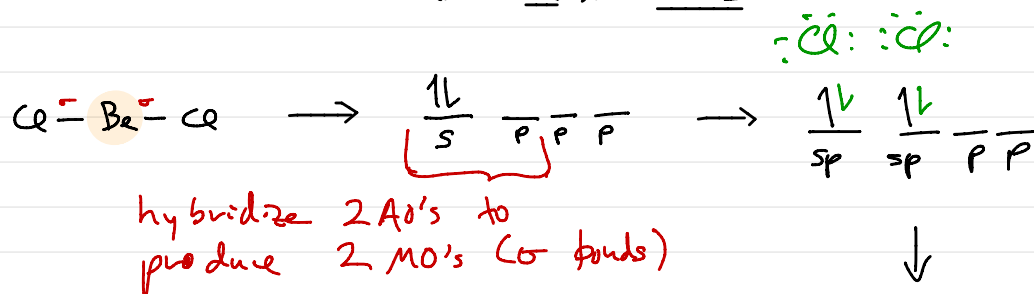 :Cl: :Cl:
Cl – Be – Cl ⟶ 1L ⟶ 1L 1L
s p p p sp sp p p
hybridize 2 AO's to
produce 2 MO's (σ bonds)